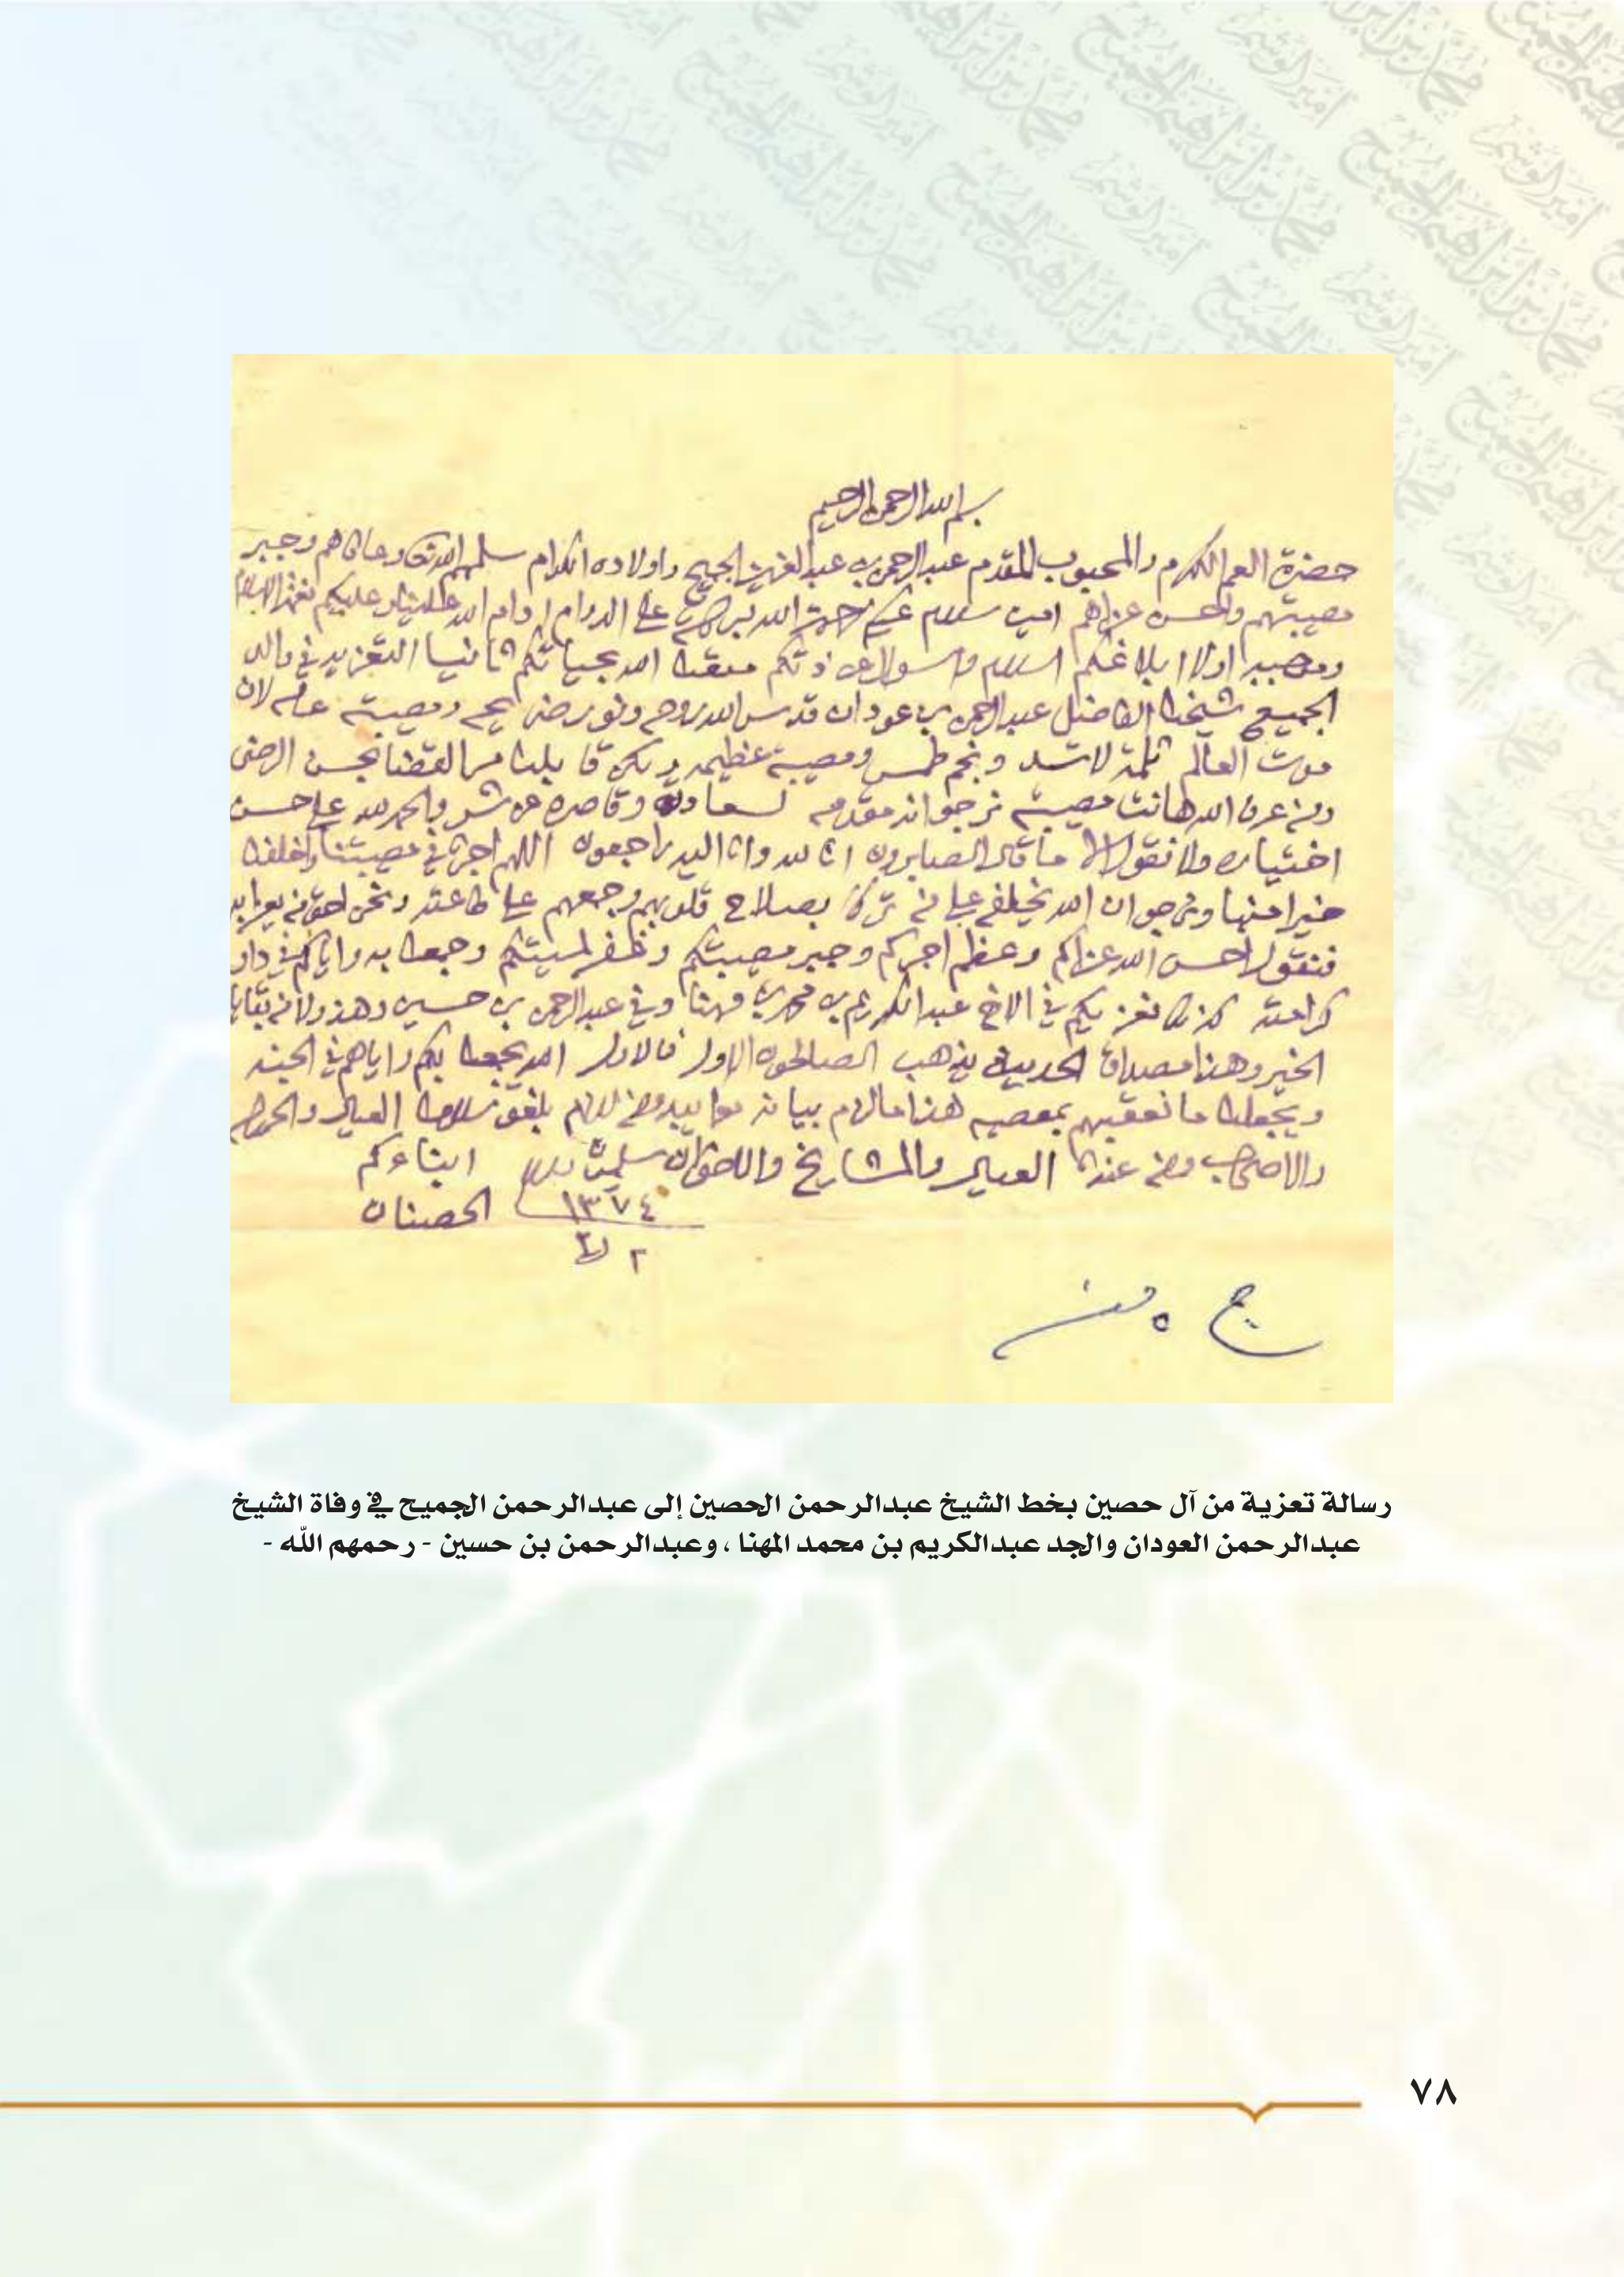 بسم الله الرحمن الرحيم
حضرة العم المكرم والمحبوب المقدم عبدالرحمن بن عبدالعزيز الجميح واولاده الكرام سلمهم الله تعالى وعافاهم وجبر
مصيبتهم واحسن عزاهم امين سلام عليكم ورحمة الله وبركاته على الدوام ادام الله علينا وعليكم نعمة الاسلام
اولا ابلاغكم السلام والسوال عن ذتكم متعنا الله بحياتكم ثانيا التعزيه في والد
الجميع شيخنا الفاضل عبدالرحمن بن عودان قدس الله روحه ونور ضريحه ومصيبته عامه لان
موت العالم ثلمة لا تسد ونجم طمس ومصيبة عظيمه ولكن قابلنا مر القضا بحسن الرضى
ومن عرف الله هانت مصيبته نرجو انه مقدمه لسعادته وقاصره عن شر والحمد لله على حسن
اختياره ولا نقول الا ما قال الصابرون انا لله وانا اليه راجعون اللهم اجرنا في مصيبتنا واخلفنا
خيرا منها ونرجو ان الله يخلفه على من ترك بصلاح قلوبهم وجمعهم على طاعته ونحن احق من يعزا به
فنقول احسن الله عزاكم وعظم اجركم وجبر مصيبتكم وغفر لميتكم وجمعنا به واياكم في دار
كرامته كذلك نعزيكم في الاخ عبدالكريم بن محمد بن مهنا وفي عبدالرحمن بن حسين وهذولا من بقايا
الخير وهذا مصداق الحديث يذهب الصالحون الاول فالاول الله يجمعنا بكم واياهم في الجنه
ويجعلنا ما نعقبهم بمعصيه هذا ما لزم بيانه مع ابلاغ سلامنا العيال والحمولة
والاصحاب ومن عندنا العيال والمشايخ والاخوان يسلمون والسلام ابناءكم
١٣٧٤ الحصنان
٢
ج
رسالة تعزية من آل حصين بخط الشيخ عبدالرحمن الحصين إلى عبدالرحمن الجميح في وفاة الشيخ
عبدالرحمن العودان والجد عبدالكريم بن محمد المهنا ، وعبدالرحمن بن حسين - رحمهم الله -
٧٨